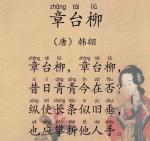 zhāng tái liǔ
章台柳
（唐）韩翃
zhāng tái liǔ zhāng tái liǔ
章台柳，章台柳，
xī rì qīng qīng jīn zài fǒu
昔日青青今在否？
zòng shǐ cháng tiáo sì jiù chuí
纵使长条似旧垂，
yě yīng pān zhé tā rén shǒu
也应攀折他人手。